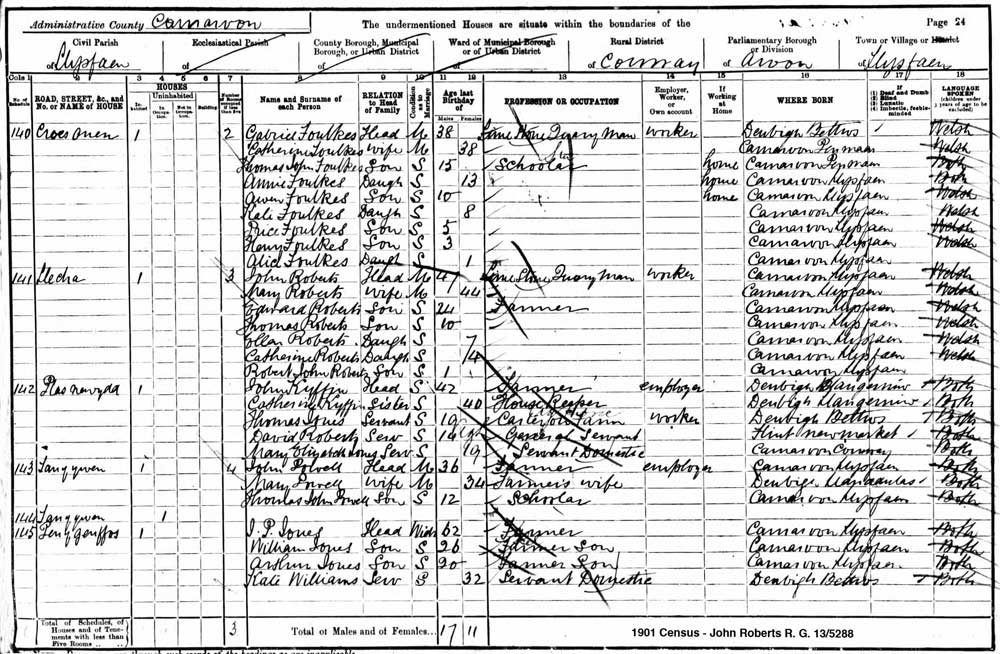 Administrative County Carnarvon The undermentioned Houses are situate within the boundaries of the Page 24
Civil Parish Ecclesiastical Parish County Borough, Municipal Borough, or Urban District Ward of Municipal Borough or of Urban District Rural District Parliamentary Borough or Division Town or Village or Hamlet
of Llysfaen of of of of Conway of Arvon of Llysfaen
Cols 1 2 3 4 5 6 7 8 9 10 11 12 13 14 15 16 17 18
No. of Schedule ROAD, STREET, &c., and No. or NAME of HOUSE HOUSES Inhabited Uninhabited In Occupation Not in Occupation Building Number of Rooms occupied if less than five Name and Surname of each Person RELATION to Head of Family Condition as to Marriage Age last Birthday of Males Females PROFESSION OR OCCUPATION Employer, Worker, or Own account If Working at Home WHERE BORN If (1) Deaf and Dumb (2) Blind (3) Lunatic (4) Imbecile, feeble-minded LANGUAGE SPOKEN (children under 3 years of age to be excluded)
140 Croes Onen 1 2 Gabriel Foulkes Head M 38 Lime Stone Quary Man worker Denbigh Bettws Welsh
Catherine Foulkes Wife M 38 Carnarvon Welsh
Thomas John Foulkes Son S 15 Schoolar home Carnarvon Both
Annie Foulkes Daugh S 13 home Carnarvon Llysfaen Both
Owen Foulkes Son S 10 home Carnarvon Llysfaen Welsh
Kate Foulkes Daugh S 8 Carnarvon Llysfaen Welsh
Price Foulkes Son S 5 Carnarvon Llysfaen Welsh
Henry Foulkes Son S 3 Carnarvon Llysfaen Welsh
Foulkes Daugh S 1 Carnarvon Llysfaen
141 Llecha 1 3 John Roberts Head M 47 Lime Stone Quary Man worker Carnarvon Llysfaen Welsh
Mary Roberts Wife M 44 Carnarvon Llysfaen Welsh
Edward Roberts Son S 24 Carnarvon Llysfaen Welsh
Thomas Roberts Son S 10 Carnarvon Llysfaen Welsh
Ellen Roberts Daugh S 7 Carnarvon Llysfaen Welsh
Catherine Roberts Daugh S 4 Carnarvon Llysfaen Welsh
Robert John Roberts Son S 1 Carnarvon Llysfaen
142 Plas newydd 1 John Kyffin Head S 42 Farmer employer Denbigh Llangerniew Both
Catherine Kyffin Sister S 40 House Keeper Denbigh Llangerniew Both
Thomas Jones Servant S 19 Carter on Farm worker Denbigh Bettws Both
David Roberts Serv S 14 General Servant Flint Newmarket Both
Mary Elizabeth Jones Serv S 19 Servant Domestic Carnarvon Conway Both
143 Tanygwen 1 4 John Powell Head M 36 Farmer employer Carnarvon Llysfaen Both
Mary Powell Wife M 34 Farmer's wife Denbigh Both
Thomas John Powell Son S 12 Schoolar Carnarvon Llysfaen Both
144 Tanygwen 1
145 1 J. P. Jones Head Wid 62 Farmer Carnarvon Llysfaen Both
William Jones Son S 26 Farmer Son Carnarvon Llysfaen Both
Arthur Jones Son S 20 Farmer Son Carnarvon Llysfaen Both
Kate Williams Serv S 32 Servant Domestic Denbigh Bettws Both
Total of Schedules, of Houses and of Tenements with less than Five Rooms 3 Total of Males and of Females... 17 11 1901 Census - John Roberts R. G. 13/5288